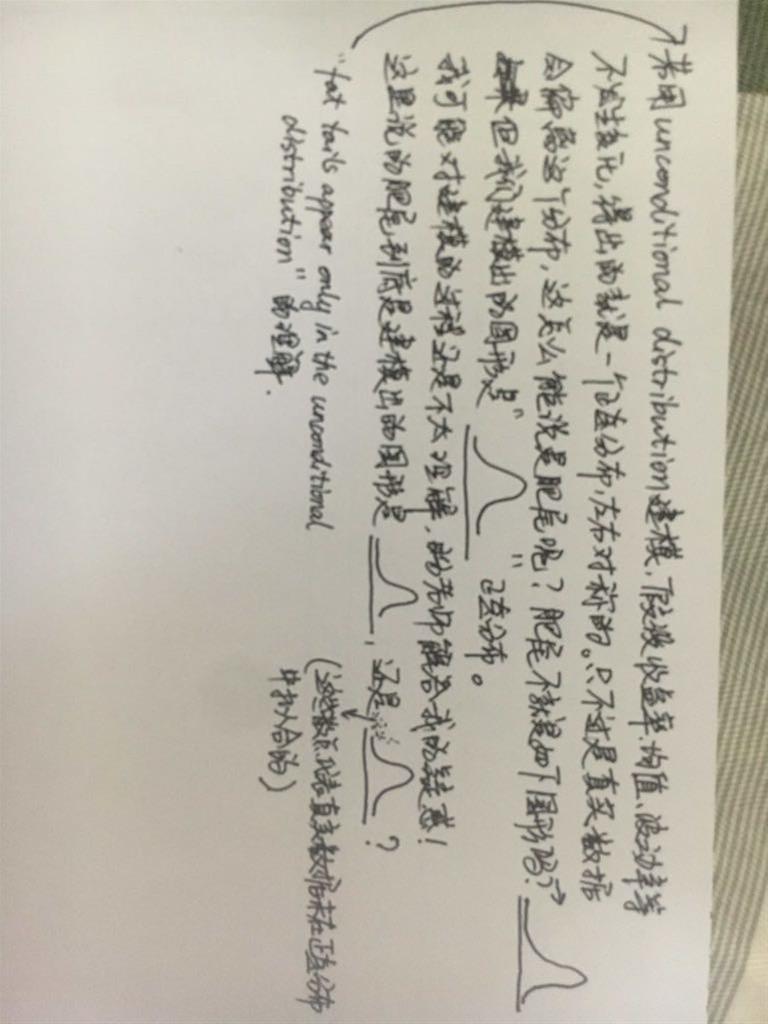 若用unconditional distribution建模，假设收益率、均值、波动率等
不发生变化，得出的就是一个正态分布，左右对称的。只不过是真实数据
会偏离这个分布，这怎么能说是肥尾呢？肥尾不就是如下图形吗？
但我们建模出的图形是" " 正态分布。
我可能对建模的过程还是不太理解，盼老师能给我解疑惑！
这里说的肥尾到底是建模出的图形是 ，还是 ？
(这些散点代表真实数据未在正态分布
中拟合的)
"fat tails appear only in the unconditional
distribution" 的理解.